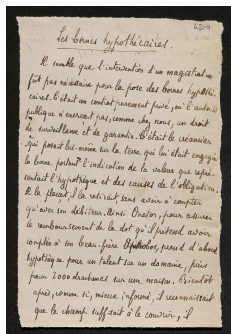 4210
Les bornes hypothécaires.
Il semble que l'intervention d'un magistrat ne
fut pas nécessaire pour la pose des bornes hypothé-
caires. C'était un contrat purement privé, où l'autorité
publique n'exerçait pas, comme chez nous, un droit
de surveillance et de garantie. C'était le créancier
qui posait lui-même sur la terre qui lui était engagée
la borne portant l'indication de la valeur que repré-
sentait l'hypothèque et des causes de l'obligation.
Il la plaçait, il la retirait sans avoir à compter
qu'avec son débiteur. Ainsi Onétor, pour assurer
le remboursement de la dot qu'il prétend avoir
comptée à son beau-frère Aphobos, prend d'abord
hypothèque pour un talent sur un domaine, puis
pour 2000 drachmes sur une maison. Bientôt
après, comme si, mieux informé, il reconnaissait
que le champ suffisait à le couvrir, il